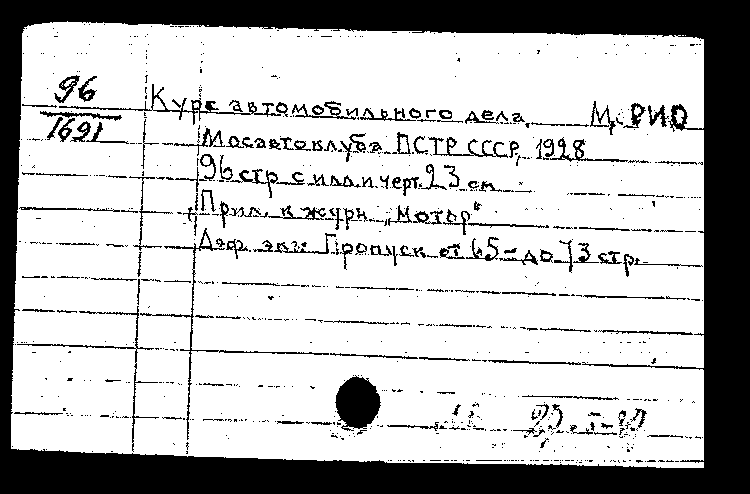 96
1691
Курс автомобильного дела. М, РИО
Мосавтоклуба ПСТР СССР, 1928
96 стр с илл. и черт. 23 см
Прил. к журн „Мотор"
Деф. экз: Пропуск от 65 - до 73 стр.